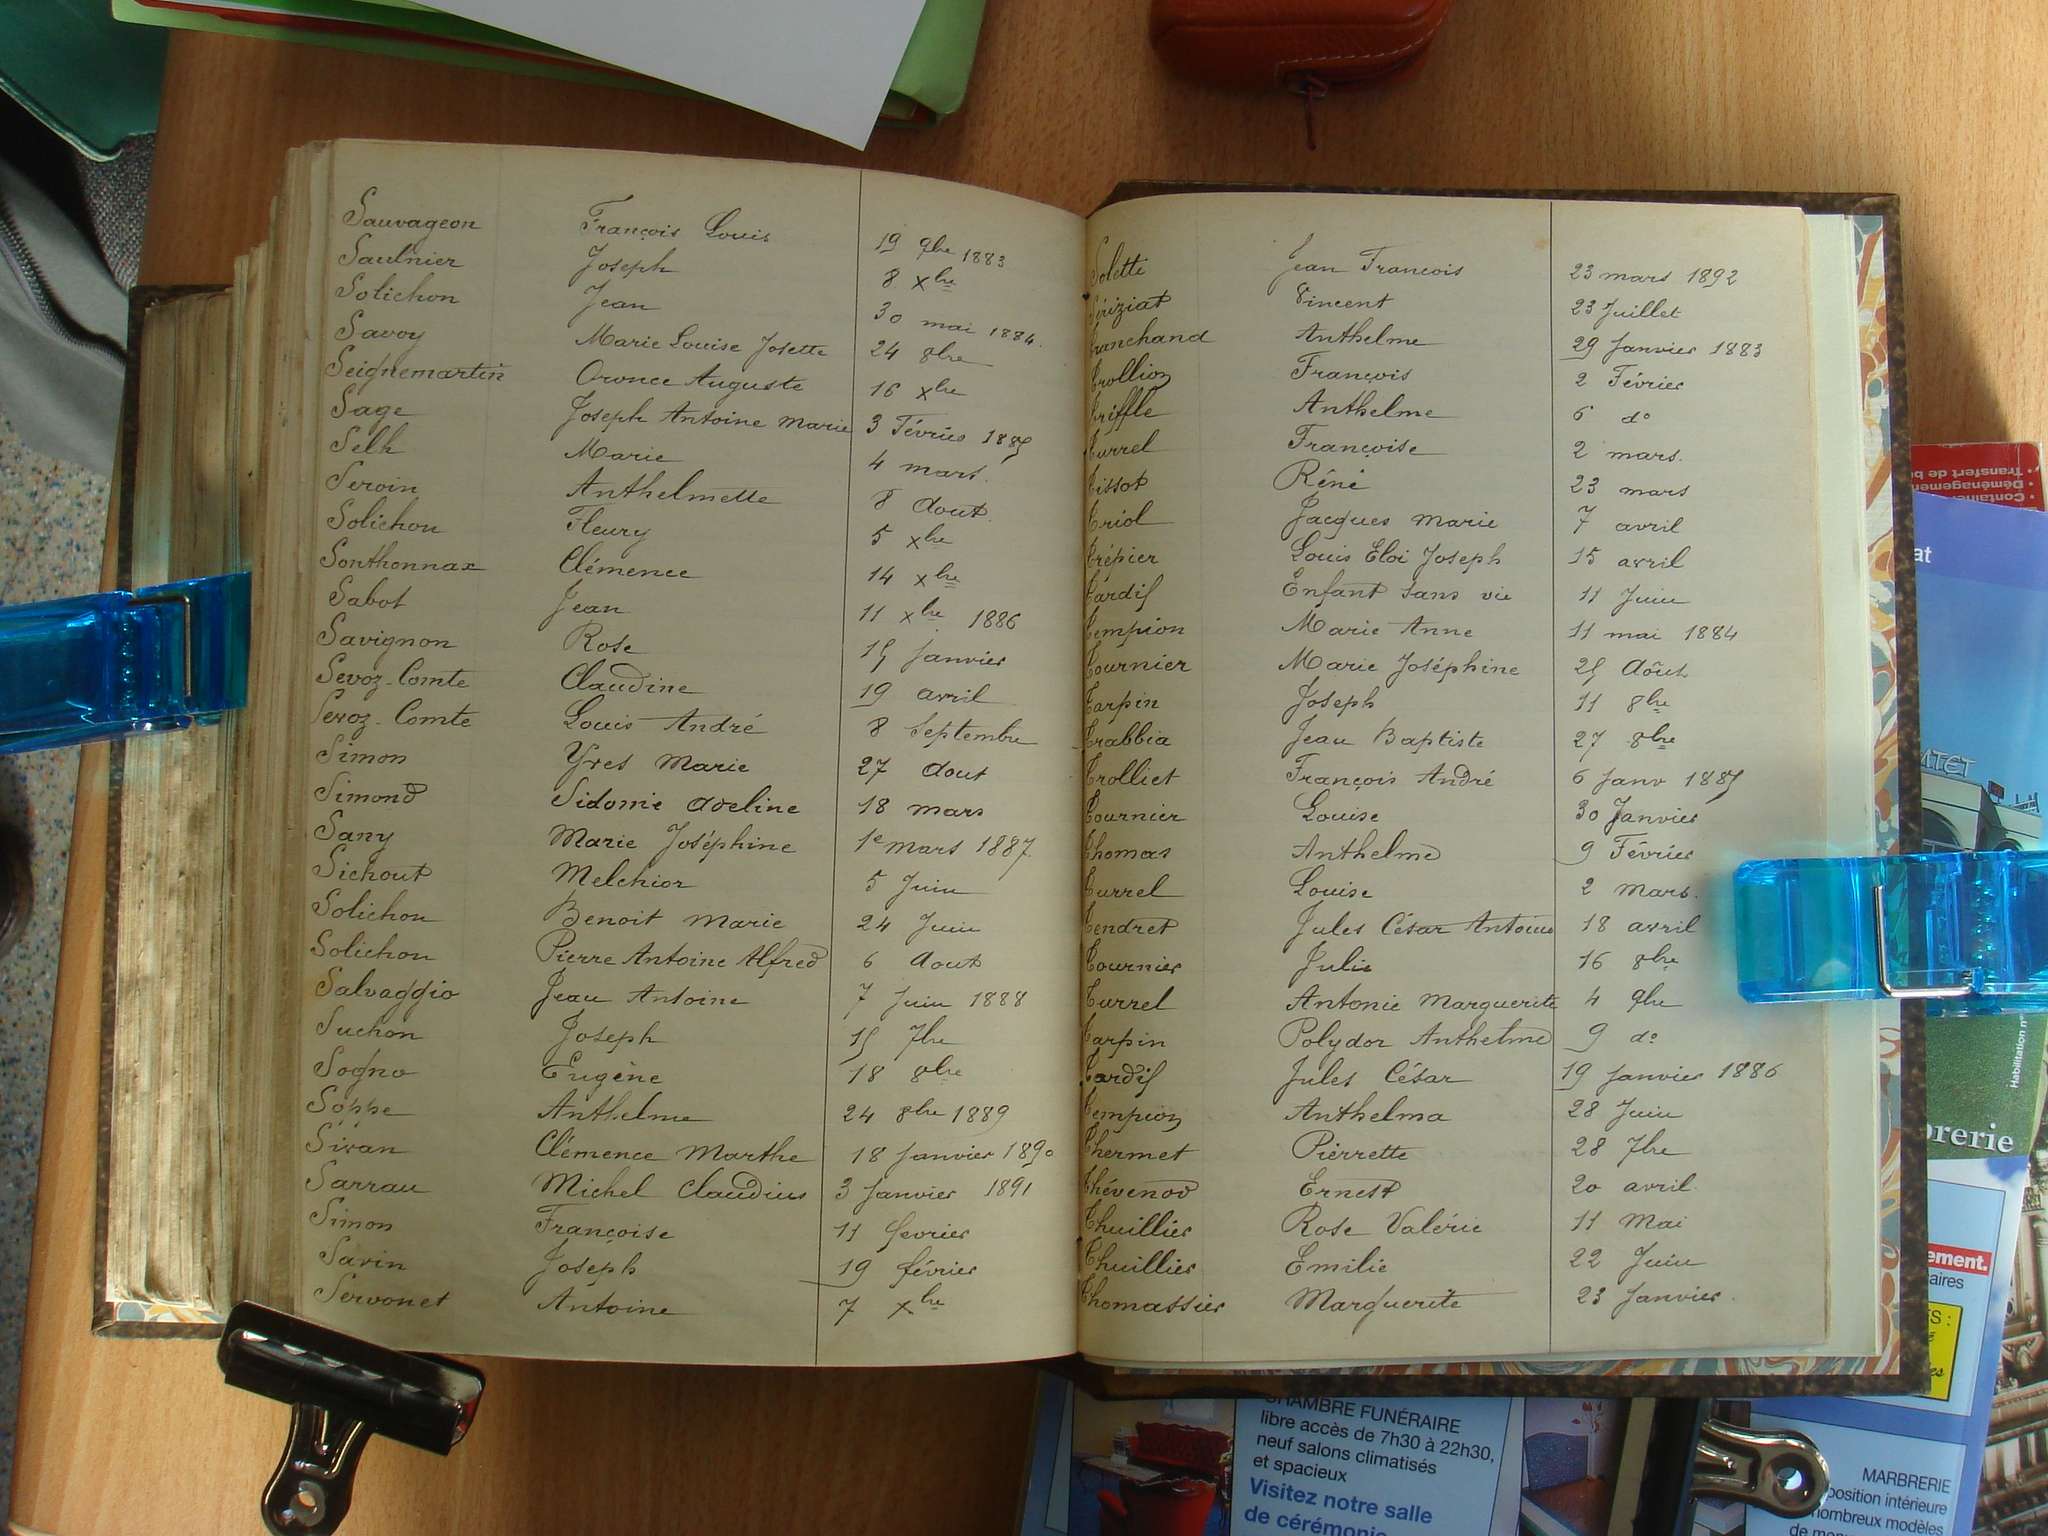 Sauvageon François Louis 19 9bre 1883
Saulnier Joseph 8 Xbre
Solichon Jean 30 mai 1884.
Savoy Marie Louise Josette 24 8bre
Seignemartin Oronce Auguste 16 xbre
Sage Joseph Antoine Marie 3 Février 1885
Selh Marie 4 mars.
Servin Anthelmette 8 Aout.
Solichon Fleury 5 xbre
Sonthonnax Clémence 14 xbre
Sabot Jean 11 xbre 1886
Savignon Rose 15 Janvier
Sevoz-Comte Claudine 19 avril
Sevoz-Comte Louis André 8 Septembre
Simon Yves Marie 27 Aout
Simond Sidonie Adeline 18 mars
Sany Marie Joséphine 1e mars 1887.
Sichout Melchior 5 Juin
Solichon Benoit Marie 24 Juin
Solichon Pierre Antoine Alfred 6 Aout
Salvaggio Jean Antoine 7 Juin 1888
Suchon Joseph 15 7bre
Sogno Eugène 18 8bre
Soppe Anthelme 24 8bre 1889
Sivan Clémence Marthe 18 Janvier 1890
Sarrau Michel Claudius 3 Janvier 1891
Simon Françoise 11 fevrier
Savin Joseph 19 février
Servonet Antoine 7 xbre
Solette Jean François 23 mars 1892
Sériziat Vincent 23 Juillet
Tranchand Anthelme 29 Janvier 1883
Trollion François 2 Février
Triffle Anthelme 6 do
Turrel Françoise 2 mars.
Tissot Réné 23 mars
Triol Jacques Marie 7 avril
Trépier Louis Eloi Joseph 15 avril
Tardif Enfant sans vie 11 Juin
Tempion Marie Anne 11 mai 1884
Tournier Marie Joséphine 25 Août
Tarpin Joseph 11 8bre
Trabbia Jean Baptiste 27 8bre
Trolliet François André 6 Janv 1885
Tournier Louise 30 Janvier
Thomas Anthelme 9 Février
Turrel Louise 2 Mars.
Tendret Jules César Antoine 18 avril
Tournier Julie 16 8bre
Turrel Antonie Marguerite 4 9bre
Tarpin Polydor Anthelme 9 do
Tardif Jules César 19 Janvier 1886
Tempion Anthelma 28 Juin
Thermet Pierrette 28 7bre
Thévenod Ernest 20 avril.
Thuillier Rose Valérie 11 Mai
Thuillier Emilie 22 Juin
Thomassier Marguerite 23 Janvier.
Transfert de
Déménagement
at
Habilitation n°
brerie
CHAMBRE FUNÉRAIRE
libre accès de 7h30 à 22h30,
neuf salons climatisés
et spacieux
Visitez notre salle
de cérémonie
MARBRERIE
position intérieure
nombreux modèles